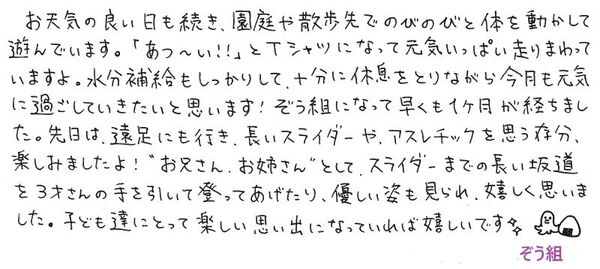 お天気の良い日も続き、園庭や散歩先でのびのびと体を動かして
遊んでいます。「あつ〜い!!」とTシャツになって元気いっぱい走りまわって
いますよ。水分補給もしっかりして、十分に休息をとりながら今月も元気
に過ごしていきたいと思います！ぞう組になって早くも1ヶ月が経ちまし
た。先日は、遠足にも行き、長いスライダーや、アスレチックを思う存分、
楽しみましたよ！"お兄さん、お姉さん"として、スライダーまでの長い坂道
を3才さんの手を引いて登ってあげたり、優しい姿も見られ、嬉しく思いま
した。子ども達にとって楽しい思い出になっていれば嬉しいです
ぞう組